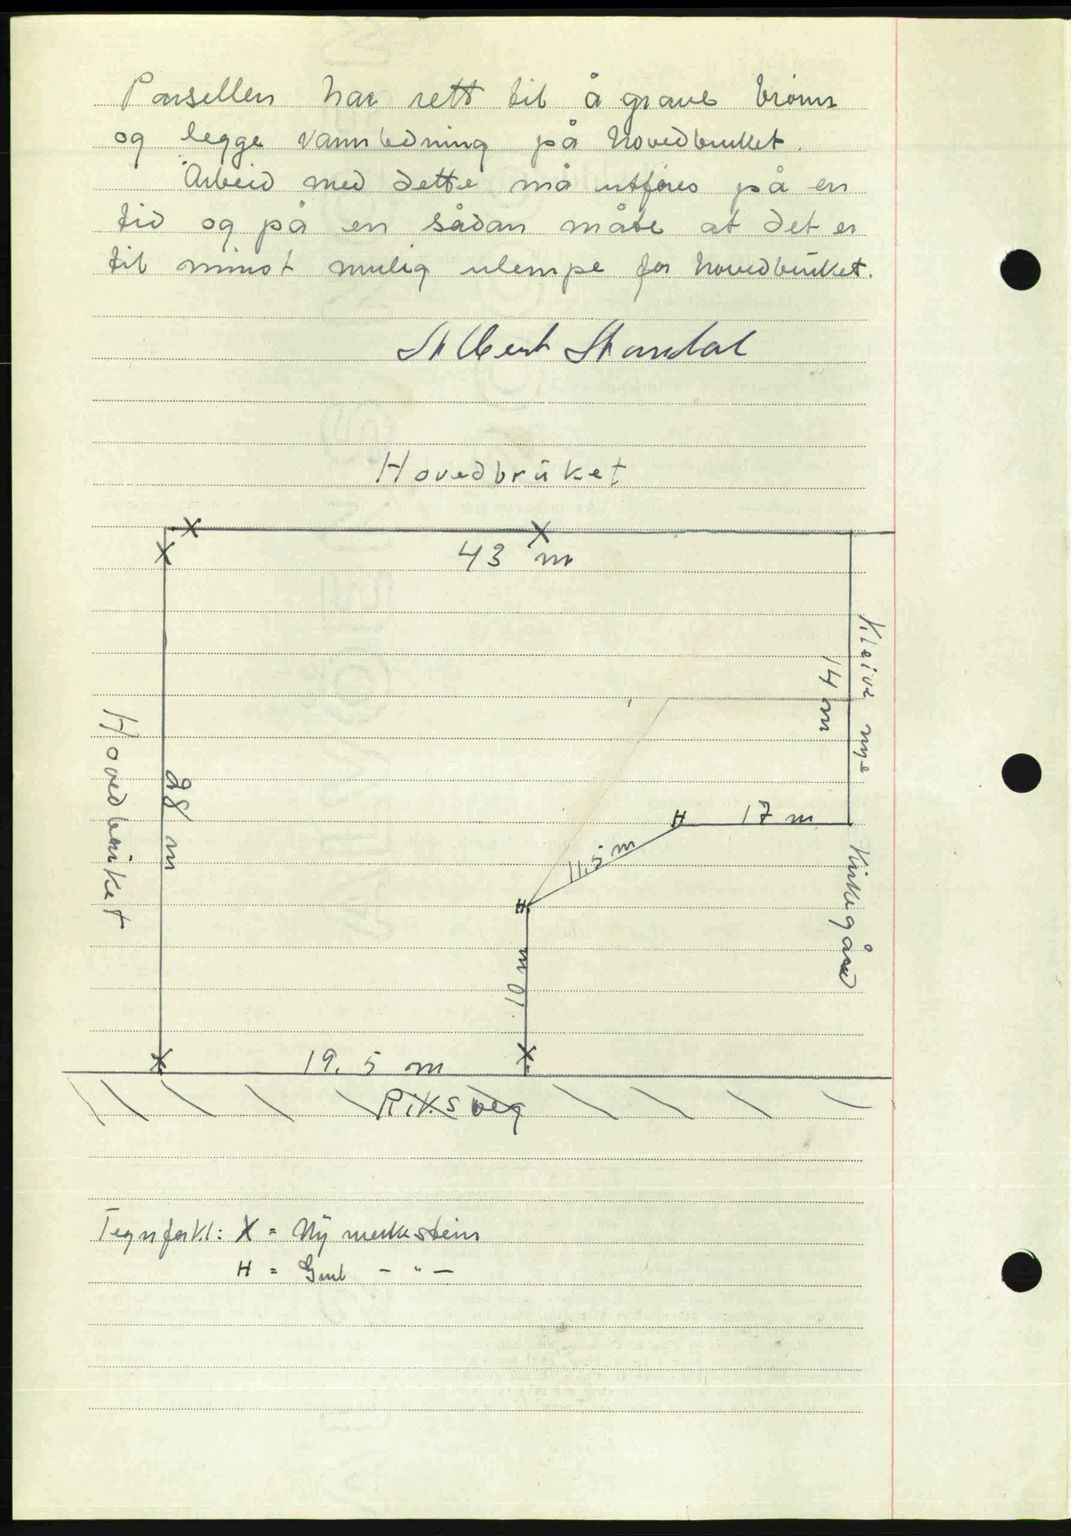 Parsellen har rett til å grave brønn
og legge vannledning på hovedbruket.
Arbeid med dette må utføres på en
tid og på en sådan måte at det er
til minst mulig ulempe for hovedbruket.
Albert Standal
Hovedbruket
43 m
Kleive nye Kirkegård
14 m
Hovedbruket
28 m
17 m
11.5 m
10 m
19.5 m
Riksveg
Tegnforkl: X = Ny merkestein
H = Gml - " -